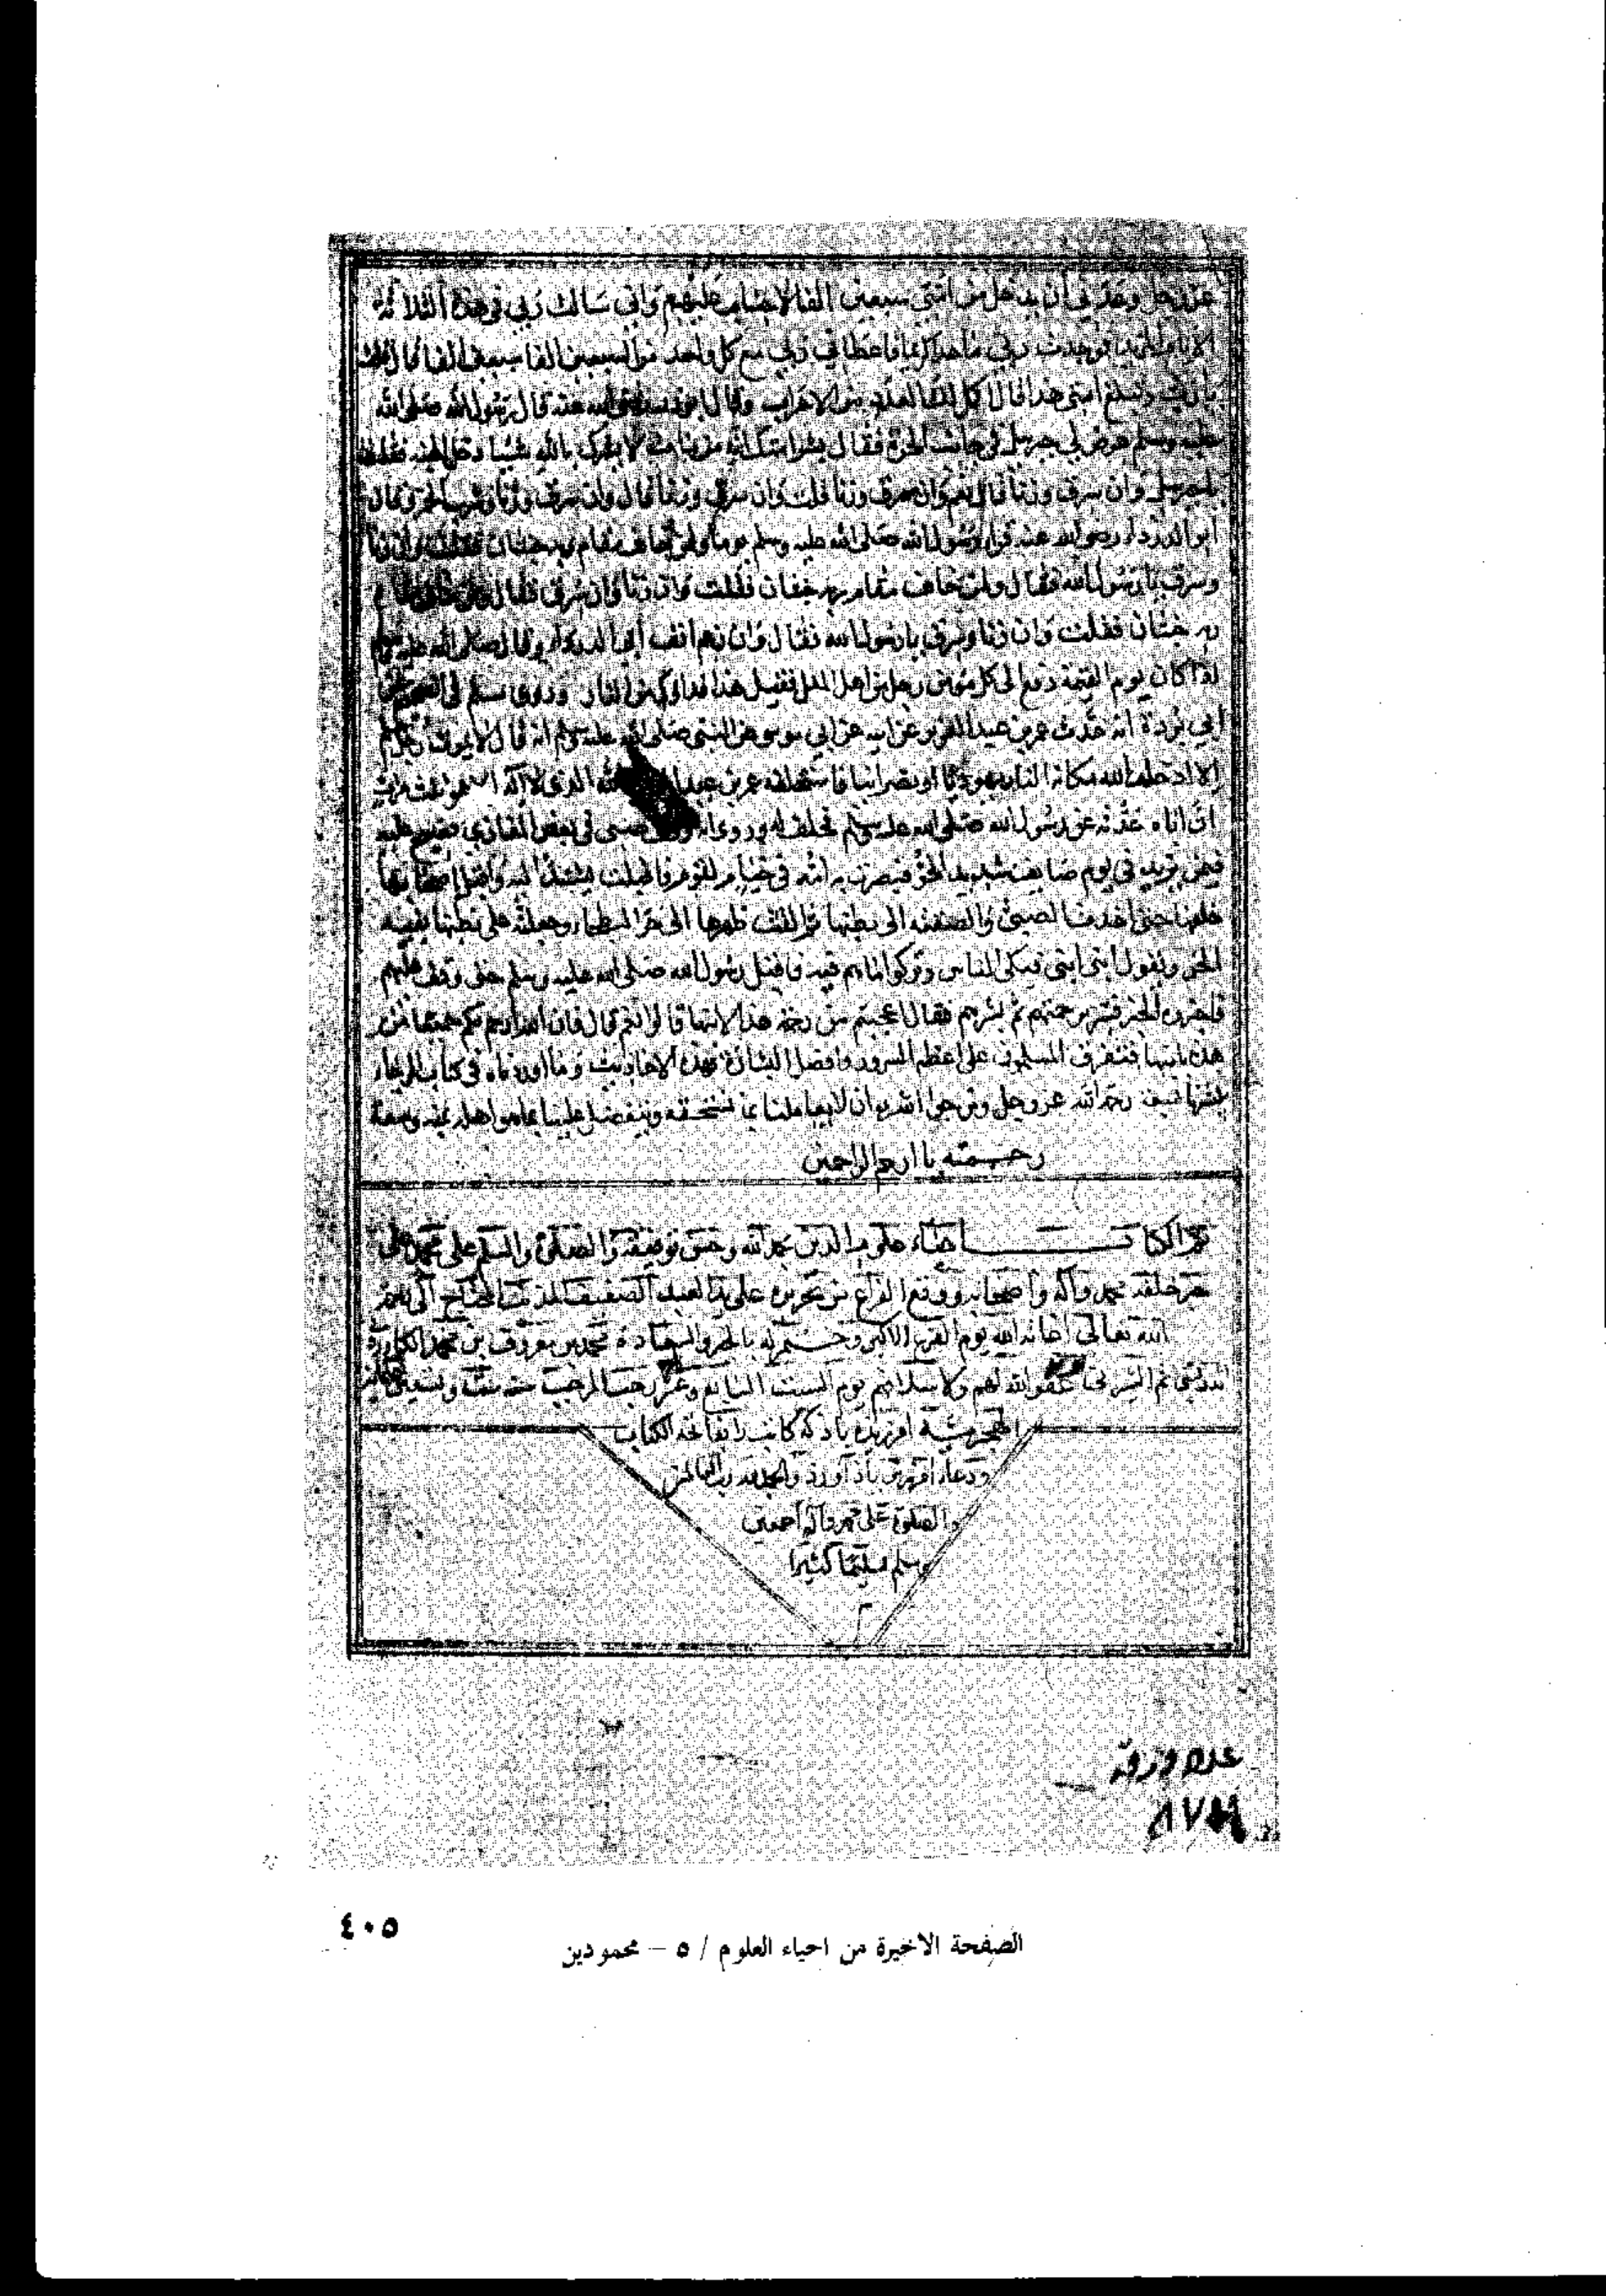 عز وجل وعدني أن يدخل من أمتي سبعين ألفا لا حساب عليهم واني سالت ربي في هذه الثلاثة
الايام المزيد فوجدت ربي ماجدا كريما فاعطاني ربي مع كل واحد من السبعين الفا سبعين الفا قال قلت
يا رب وتبلغ امتي هذا قال اكمل لك العدد من الاعراب وقال ابو ذر رضي الله عنه قال رسول الله صلى الله
عليه وسلم عرض لي جبريل في جانب الحرة فقال بشر امتك انه من مات لا يشرك بالله شيئا دخل الجنة فقلت
يا جبريل وان سرق وزنا قال نعم وان سرق وزنا قلت وان سرق وزنا قال وان سرق وزنا وشرب الخمر وقال
أبو الدرداء رضي الله عنه قرا رسول الله صلى الله عليه وسلم يوما ولمن خاف مقام ربه جنتان فقلت وان زنا
وسرق يا رسول الله فقال ولمن خاف مقام ربه جنتان فقلت وان زنا وان سرق فقال ولمن خاف مقام
ربه جنتان فقلت وان زنا وسرق يا رسول الله فقال وان رغم انف أبي الدرداء وقال صلى الله عليه وسلم
اذا كان يوم القيمة دفع الى كل مؤمن رجل من اهل الملل فقيل هذا فداوك من النار وروى مسلم في الصحيح عن
أبي بردة انه حدث عمر بن عبد العزيز عن ابيه عن ابي موسى عن النبي صلى الله عليه وسلم انه قال لا يموت رجل مسلم
إلا ادخل الله مكانه النار يهوديا او نصرانيا فاستحلفه عمر بن عبد الله الذي لا اله الا هو ثلث مرات
ان اباه حدثه عن رسول الله صلى الله عليه وسلم فحلف له وروي انه وقف صبي في بعض المغازي
فيمن يزيد في يوم صايف شديد الحر فبصرت به امراة في خباء القوم فاقبلت تشتد واقبل اصحابها
خلفها حتى اخذت الصبي والصقته الى بطنها ثم القت ظهرها الى حر البطحاء وجعلته على بطنها تقيه
الحر وتقول ابني ابني فبكى الناس وتركوا ما هم فيه فاقبل رسول الله صلى الله عليه وسلم حتى وقف عليهم
فاخبروه الخبر فسر برحمتهم ثم بشرهم فقال اعجبتم من رحمة هذه لابنها قالوا نعم قال فان الله ارحم بكم جميعا من
هذه بابنها فتفرق المسلمون على اعظم السرور وافضل البشارة فهذه الاحاديث وما اوردناه في كتاب الرجاء
يبشرنا بسعة رحمة الله عز وجل ونرجوا الله ان لا يعاملنا بما نستحقه ويتفضل علينا بما هو اهله بمنه وسعة
رحمته يا ارحم الراحمين
تم الكتاب احياء علوم الدين بحمد الله وحسن توفيقه والصلوة والسلم على محمد
خير خلقه محمد وآله وأصحابه ووقع الفراغ من تحريره على يد العبد الضعيف المذنب المحتاج الى
الله تعالى اعانه الله يوم الفزع الاكبر وختم له بالخير والسعادة محمد بن معروف بن محمد
ثم عفر الله لهم ولاسلافهم يوم السبت السابع وعشر رجب المرجب سنه ست وتسعين
الهجرية
وعاء والحمد لله رب العالمين
والصلوة على محمد وآله أجمعين
وسلم تسليما كثيرا
عدد ورقه
الصفحة الاخيرة من احياء العلوم / ٥ – محمودين
٤٠٥